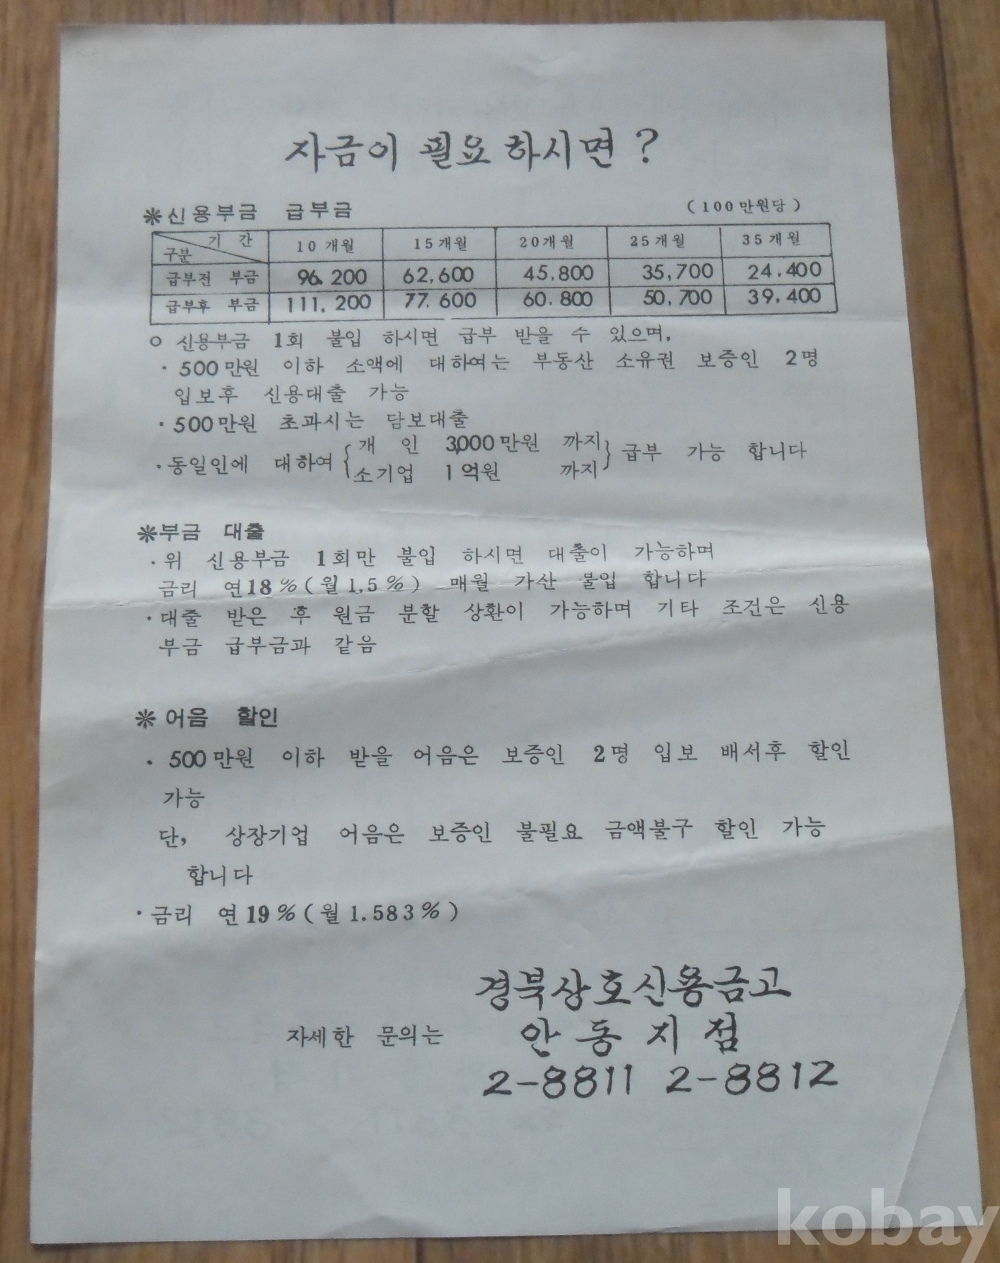 자금이 필요하시면?
※신용부금 급부금 (100만원당)
구분 기간 10개월 15개월 20개월 25개월 35개월
급부전 부금 96.200 62,600 45.800 35,700 24.400
급부후 부금 111,200 77.600 60.800 50,700 39.400
○ 신용부금 1회 불입 하시면 급부 받을 수 있으며,
· 500만원 이하 소액에 대하여는 부동산 소유권 보증인 2명
입보후 신용대출 가능
· 500만원 초과시는 담보대출
· 동일인에 대하여 { 개 인 3,000만원 까지
소기업 1억원 까지 } 급부 가능 합니다
※부금 대출
· 위 신용부금 1회만 불입 하시면 대출이 가능하며
금리 연18%(월1,5%) 매월 가산 불입 합니다
· 대출 받은 후 원금 분할 상환이 가능하며 기타 조건은 신용
부금 급부금과 같음
※ 어음 할인
· 500만원 이하 받을 어음은 보증인 2명 입보 배서후 할인
가능
단, 상장기업 어음은 보증인 불필요 금액불구 할인 가능
합니다
· 금리 연19%(월1.583%)
경북상호신용금고
자세한 문의는 안동지점
2-8811 2-8812
kobay